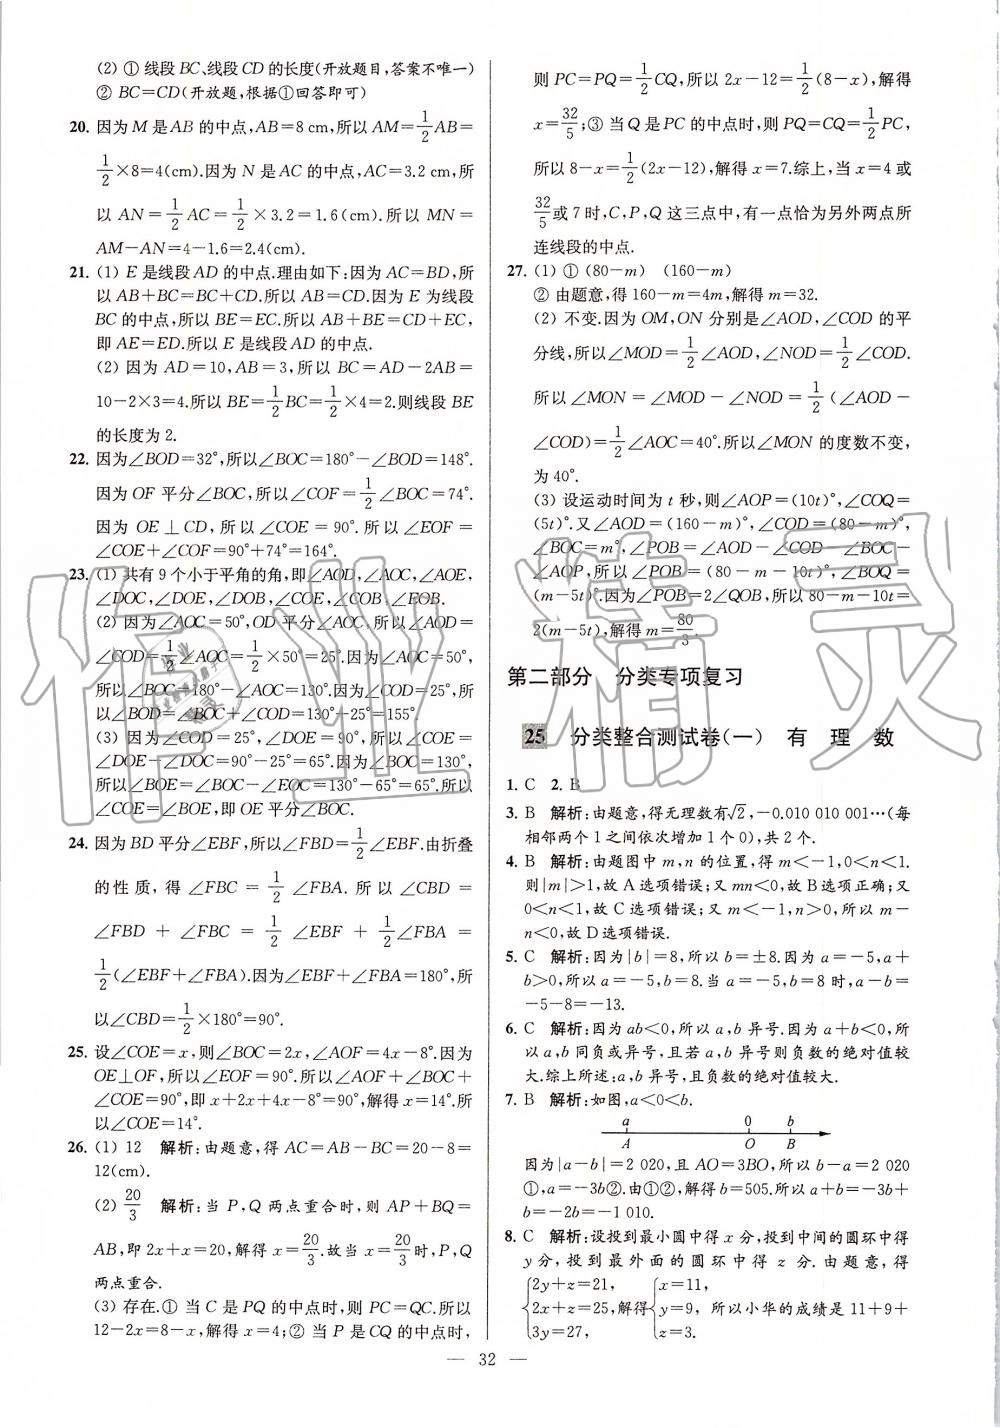 (2) ① 线段 BC、线段 CD 的长度(开放题目,答案不唯一)
② BC=CD(开放题,根据①回答即可)
20. 因为 M 是 AB 的中点,AB=8 cm,所以 AM=1/2AB=
1/2×8=4(cm).因为 N 是 AC 的中点,AC=3.2 cm,所
以 AN=1/2AC=1/2×3.2=1.6(cm).所以 MN=
AM-AN=4-1.6=2.4(cm).
21. (1) E 是线段 AD 的中点.理由如下:因为 AC=BD,所
以 AB+BC=BC+CD.所以 AB=CD.因为 E 为线段
BC 的中点,所以 BE=EC.所以 AB+BE=CD+EC,
即 AE=ED.所以 E 是线段 AD 的中点.
(2) 因为 AD=10,AB=3,所以 BC=AD-2AB=
10-2×3=4.所以 BE=1/2BC=1/2×4=2.则线段 BE
的长度为 2.
22. 因为∠BOD=32°,所以∠BOC=180°-∠BOD=148°.
因为 OF 平分∠BOC,所以∠COF=1/2∠BOC=74°.
因为 OE⊥CD,所以∠COE=90°.所以∠EOF=
∠COE+∠COF=90°+74°=164°.
23. (1) 共有 9 个小于平角的角,即∠AOD,∠AOC,∠AOE,
∠DOC,∠DOE,∠DOB,∠COE,∠COB,∠EOB.
(2) 因为∠AOC=50°,OD 平分∠AOC,所以∠AOD=
∠COD=1/2∠AOC=1/2×50°=25°.因为∠AOC=50°,
所以∠BOC=180°-∠AOC=180°-50°=130°.所
以∠BOD=∠BOC+∠COD=130°+25°=155°.
(3) 因为∠DOE=90°,∠COD=25°,所以∠COE=
∠DOE-∠DOC=90°-25°=65°.因为∠BOC=130°,
所以∠BOE=∠BOC-∠COE=130°-65°=65°.所
以∠COE=∠BOE,即 OE 平分∠BOC.
24. 因为 BD 平分∠EBF,所以∠FBD=1/2∠EBF.由折叠
的性质,得∠FBC=1/2∠FBA.所以∠CBD=
∠FBD+∠FBC=1/2∠EBF+1/2∠FBA=
1/2(∠EBF+∠FBA).因为∠EBF+∠FBA=180°,所
以∠CBD=1/2×180°=90°.
25. 设∠COE=x,则∠BOC=2x,∠AOF=4x-8°.因为
OE⊥OF,所以∠EOF=90°.所以∠AOF+∠BOC+
∠COE=90°,即 x+2x+4x-8°=90°,解得 x=14°.所
以∠COE=14°.
26. (1) 12 解析:由题意,得 AC=AB-BC=20-8=
12(cm).
(2) 20/3 解析:当 P,Q 两点重合时,则 AP+BQ=
AB,即 2x+x=20,解得 x=20/3.故当 x=20/3时,P,Q
两点重合.
(3) 存在.① 当 C 是 PQ 的中点时,则 PC=QC.所以
12-2x=8-x,解得 x=4;② 当 P 是 CQ 的中点时,
则 PC=PQ=1/2CQ,所以 2x-12=1/2(8-x),解得
x=32/5;③ 当 Q 是 PC 的中点时,则 PQ=CQ=1/2PC,
所以 8-x=1/2(2x-12),解得 x=7.综上,当 x=4 或
32/5或 7 时,C,P,Q 这三点中,有一点恰为另外两点所
连线段的中点.
27. (1) ① (80-m) (160-m)
② 由题意,得 160-m=4m,解得 m=32.
(2) 不变.因为 OM,ON 分别是∠AOD,∠COD 的平
分线,所以∠MOD=1/2∠AOD,∠NOD=1/2∠COD.
所以∠MON=∠MOD-∠NOD=1/2(∠AOD-
∠COD)=1/2∠AOC=40°.所以∠MON 的度数不变,
为 40°.
(3) 设运动时间为 t 秒,则∠AOP=(10t)°,∠COQ=
(5t)°.又∠AOD=(160-m)°,∠COD=(80-m)°,
∠BOC=m°,∠POB=∠AOD-∠COD-∠BOC-
∠AOP,所以∠POB=(80-m-10t)°,∠BOQ=
(m-5t)°.因为∠POB=2∠QOB,所以 80-m-10t=
2(m-5t),解得 m=80/3.
第二部分 分类专项复习
25 分类整合测试卷(一) 有 理 数
1. C 2. B
3. B 解析:由题意,得无理数有√2,-0.010 010 001…(每
相邻两个 1 之间依次增加 1 个 0),共 2 个.
4. B 解析:由题图中 m,n 的位置,得 m<-1,0<n<1.
则|m|>1,故 A 选项错误;又 mn<0,故 B 选项正确;又
0<n<1,故 C 选项错误;又 m<-1,n>0,所以 m-
n<0,故 D 选项错误.
5. C 解析:因为|b|=8,所以 b=±8.因为 a=-5,a+
b>0,所以 a=-5,b=8.当 a=-5,b=8 时,a-b=
-5-8=-13.
6. C 解析:因为 ab<0,所以 a,b 异号.因为 a+b<0,所
以 a,b 同负或异号,且若 a,b 异号则负数的绝对值较
大.综上所述:a,b 异号,且负数的绝对值较大.
7. B 解析:如图,a<0<b.
a 0 b
A O B
因为|a-b|=2 020,且 AO=3BO,所以 b-a=2 020
①,a=-3b②.由①②,解得 b=505.所以 a+b=-3b+
b=-2b=-1 010.
8. C 解析:设投到最小圆中得 x 分,投到中间的圆环中得
y 分,投到最外面的圆环中得 z 分.由题意,得
{2y+z=21, {x=11,
{2x+z=25,解得{y=9, 所以小华的成绩是 11+9+
{3y=27, {z=3.
— 32 —
作业精灵